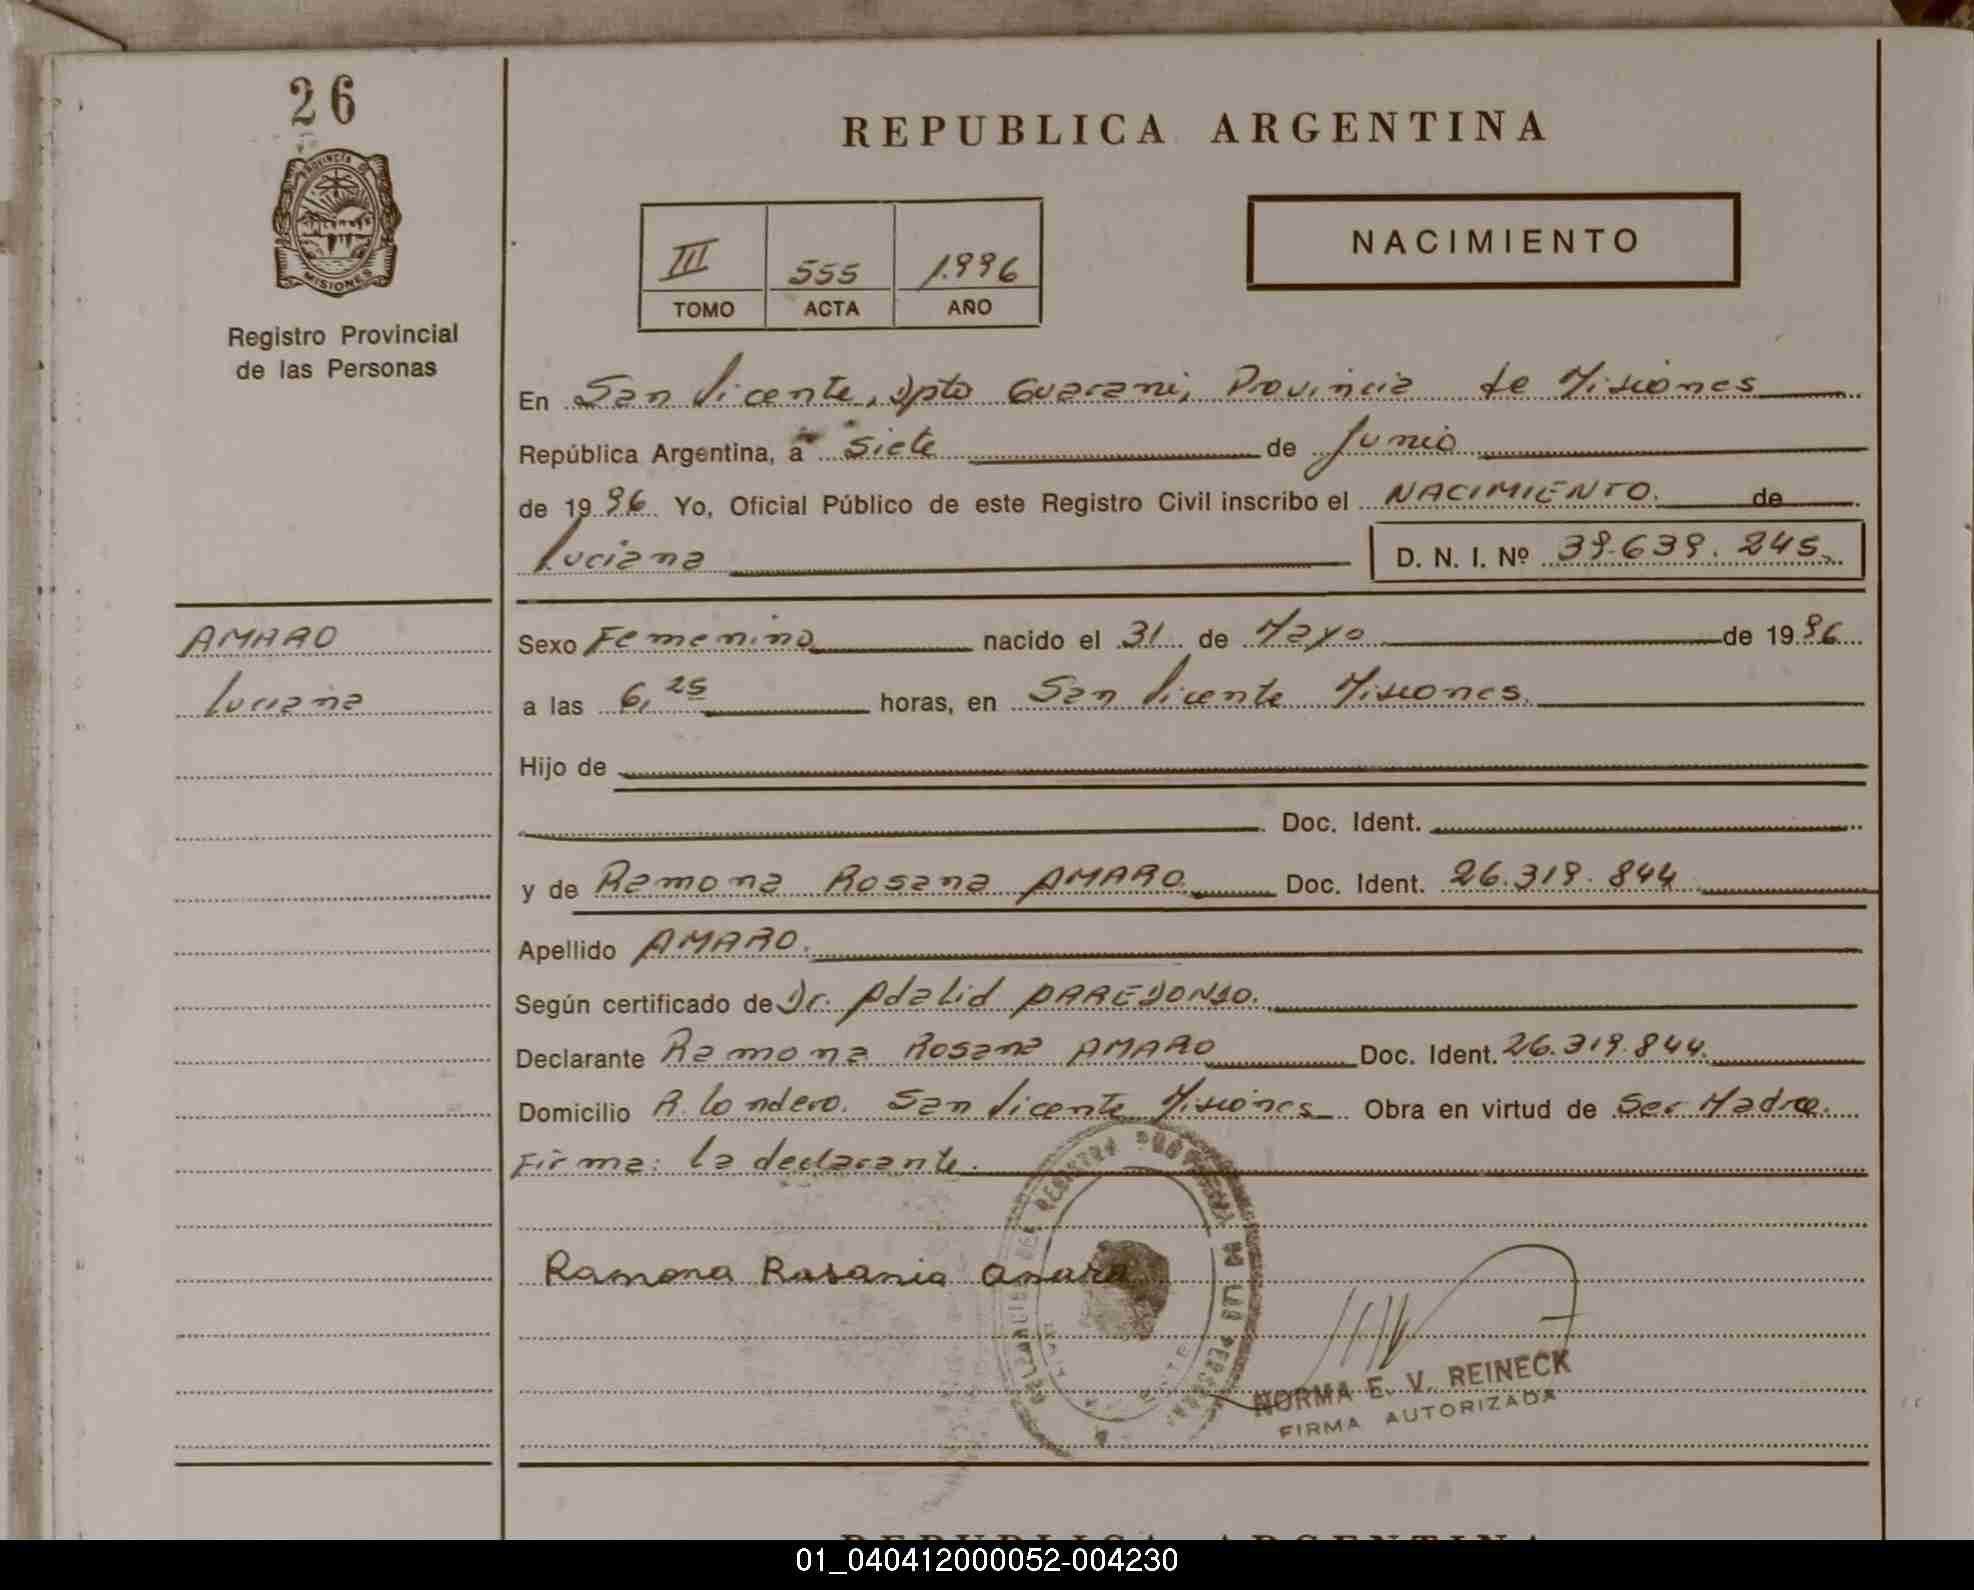 26
PROVINCIA DE
MISIONES
Registro Provincial
de las Personas
REPUBLICA ARGENTINA
III 555 1.996
TOMO ACTA AÑO
NACIMIENTO
En San Vicente, Dpto Guarani, Provincia de Misiones
República Argentina, a siete de Junio
de 1996 Yo, Oficial Público de este Registro Civil inscribo el NACIMIENTO. de
Luciana D. N. I. Nº 39.639.245
AMARO
Luciana
Sexo Femenino nacido el 31 de Mayo de 1996
a las 6,25 horas, en San Vicente Misiones.
Hijo de
Doc. Ident.
y de Ramona Rosana AMARO Doc. Ident. 26.319.844
Apellido AMARO.
Según certificado de Dr. Adalid
Declarante Ramona Rosana AMARO Doc. Ident. 26.319.844.
Domicilio A. Londero. San Vicente Misiones Obra en virtud de Ser Madre.
Firma: La declarante.
Ramona Rosania Amaro
NORMA E. V. REINECK
FIRMA AUTORIZADA
REPUBLICA ARGENTINA
01_040412000052-004230